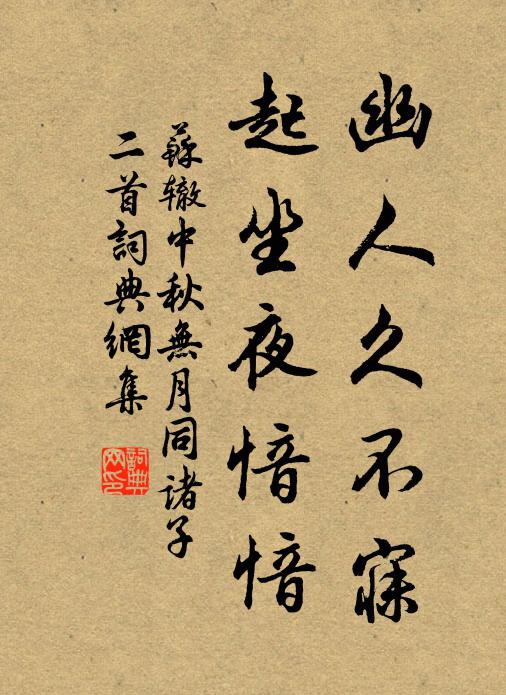 幽人久不寐
起坐夜愔愔
蘇辙中秋無月同諸子
二首詞典網集
詞典
网印